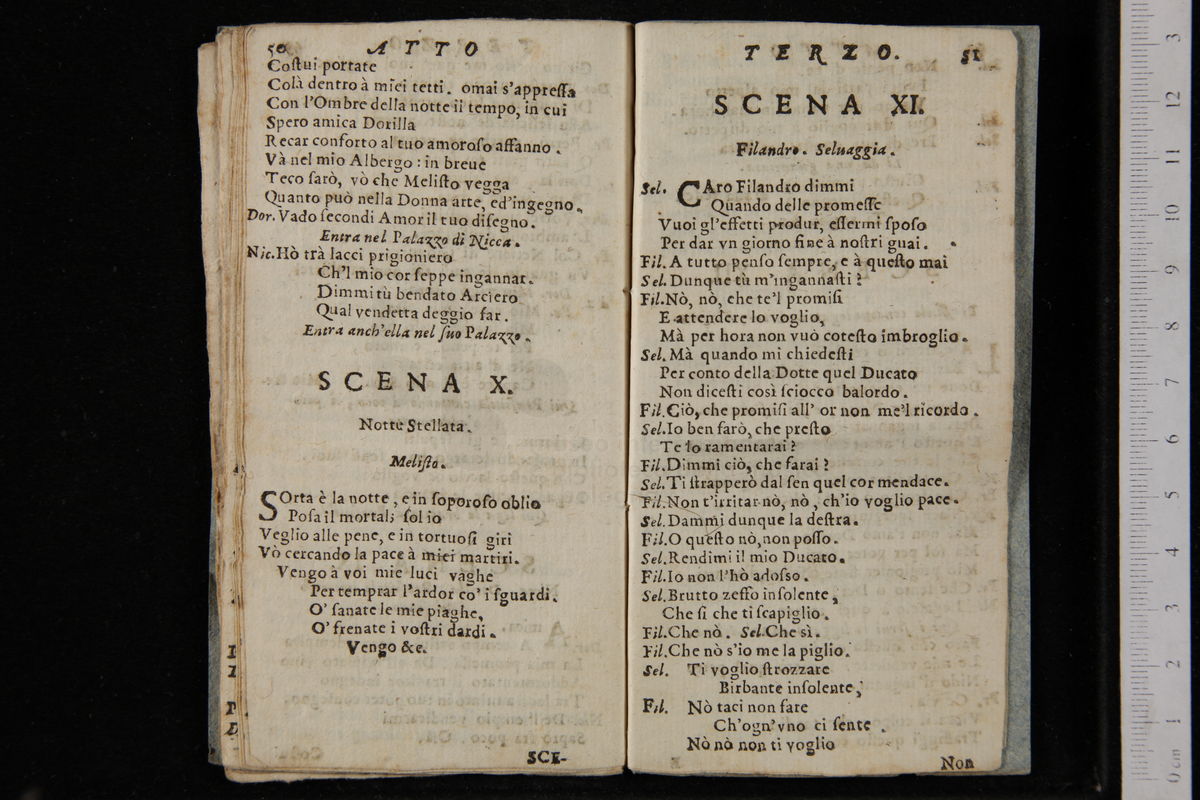 50 ATTO
Coſtui portate
Colà dentro à miei tetti. omai s'appreſſa
Con l'Ombre della notte il tempo, in cui
Spero amica Dorilla
Recar conforto al tuo amoroſo affanno.
Và nel mio Albergo: in breue
Teco ſarò, vò che Meliſto vegga
Quanto può nella Donna arte, ed'ingegno.
Dor. Vado ſecondi Amor il tuo diſegno.
Entra nel Palazzo di Nicca.
Nic. Hò trà lacci prigioniero
Ch'l mio cor ſeppe ingannar.
Dimmi tù bendato Arciero
Qual vendetta deggio far.
Entra anch'ella nel ſuo Palazzo.
SCENA X.
Notte Stellata.
Meliſto.
SOrta è la notte, e in ſoporoſo oblio
Poſa il mortal; ſol io
Veglio alle pene, e in tortuoſi giri
Vò cercando la pace à miei martiri.
Vengo à voi mie luci vaghe
Per temprar l'ardor co' i ſguardi.
O' ſanate le mie piaghe,
O' frenate i voſtri dardi.
Vengo &c.
SCE-
TERZO. 51
SCENA XI.
Filandro. Seluaggia.
Sel. CAro Filandro dimmi
Quando delle promeſſe
Vuoi gl'effetti produr, eſſermi ſpoſo
Per dar vn giorno fine à noſtri guai.
Fil. A tutto penſo ſempre, e à queſto mai
Sel. Dunque tù m'ingannaſti?
Fil. Nò, nò, che te'l promiſi
E attendere lo voglio,
Mà per hora non vuó coteſto imbroglio.
Sel. Mà quando mi chiedeſti
Per conto della Dotte quel Ducato
Non diceſti così ſciocco balordo.
Fil. Ciò, che promiſi all' or non me'l ricordo.
Sel. Io ben farò, che preſto
Te lo ramentarai?
Fil. Dimmi ciò, che farai?
Sel. Ti ſtrapperò dal ſen quel cor mendace.
Fil. Non t'irritar nò, nò, ch'io voglio pace.
Sel. Dammi dunque la deſtra.
Fil. O queſto nò, non poſſo.
Sel. Rendimi il mio Ducato.
Fil. Io non l'hò adoſso.
Sel. Brutto zeffo inſolente,
Che ſi che ti ſcapiglio.
Fil. Che nò. Sel. Che sì.
Fil. Che nò s'io me la piglio.
Sel. Ti voglio ſtrozzare
Birbante inſolente,
Fil. Nò taci non fare
Ch'ogn'vno ci ſente.
Nò nò non ti voglio
Non